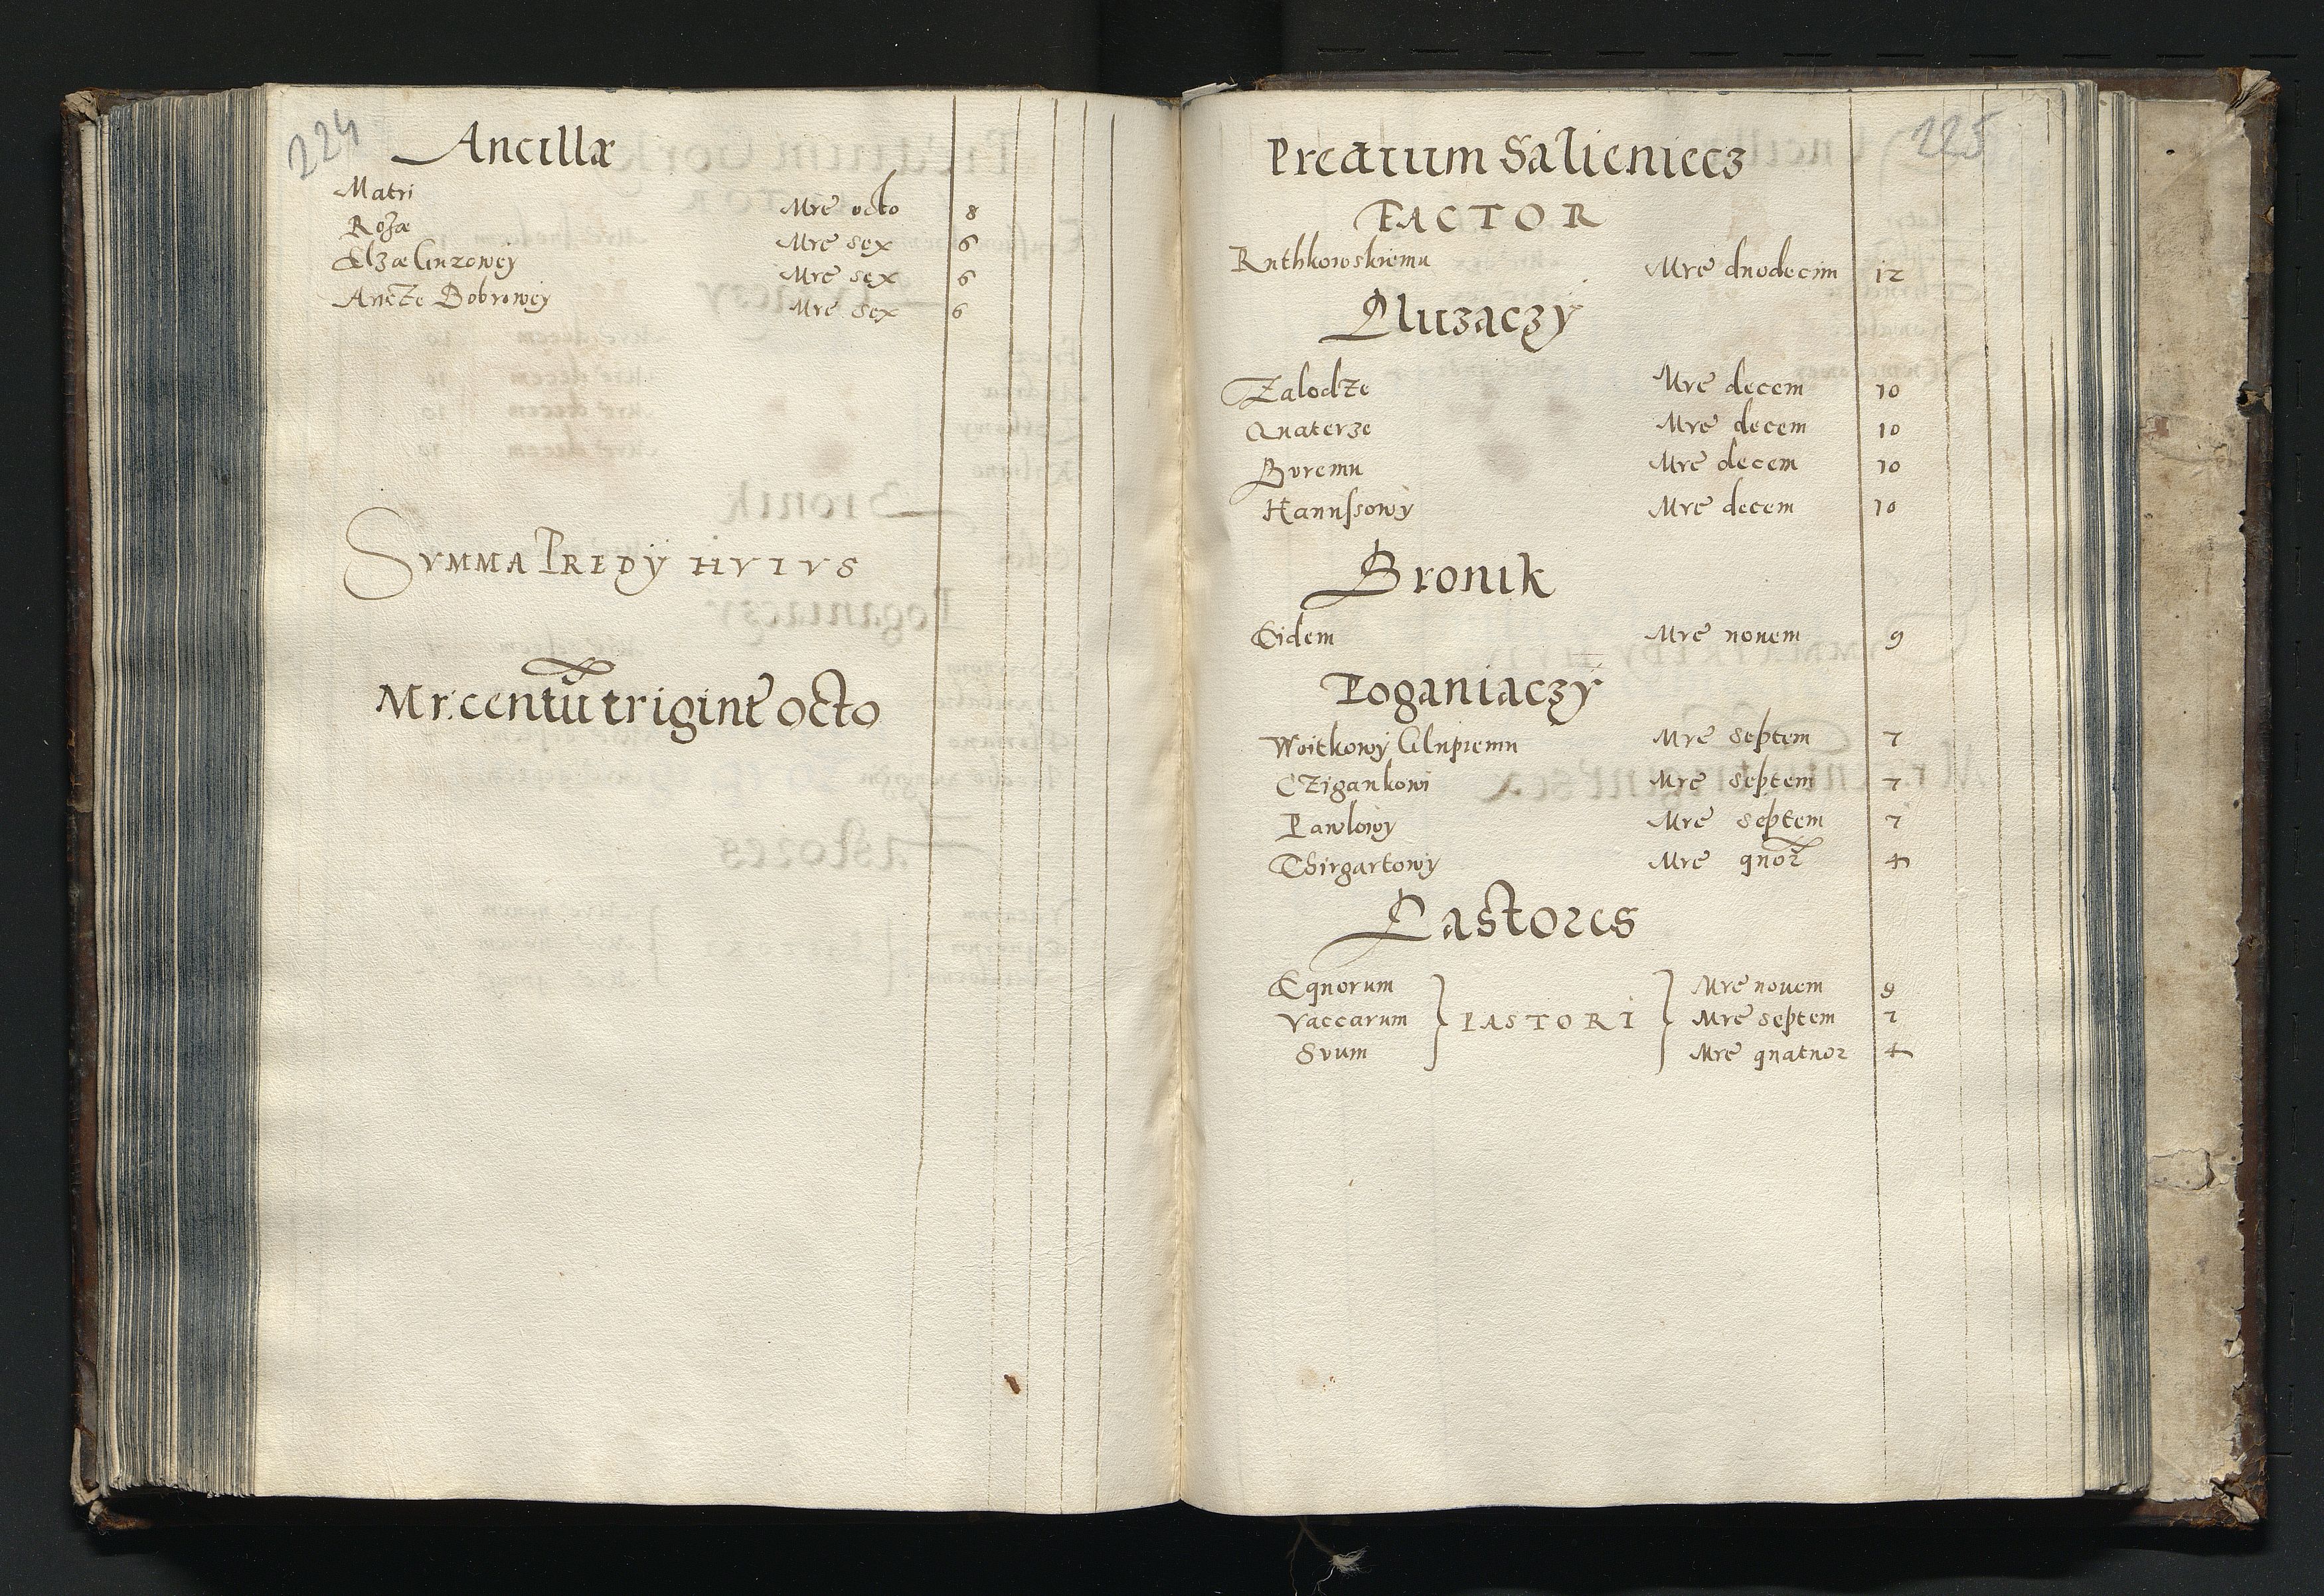 224
Ancillæ
Matri Mre octo 8
Rozæ Mre sex 6
Elzæ Linzowey Mre sex 6
Ancze Bobrowey Mre sex 6
SVMMA PREDŸ HVIVS
Mr. centū trigint octo
225
Predium Salieniecz
FACTOR
Ruthkowskiemu Mre duodecim 12
Pluzaczÿ
Zalodze Mre decem 10
Quaterze Mre decem 10
Buremu Mre decem 10
Hannssowÿ Mre decem 10
Bronik
Eidem Mre nouem 9
Poganiaczÿ
Woitkowÿ Glupiemu Mre septem 7
CZigankowi Mre septem 7
Pawlowÿ Mre septem 7
Thirgartowÿ Mre quor 4
Pastores
Equorum Mre nouem 9
Vaccarum } PASTORI } Mre septem 7
Suum Mre quatuor 4